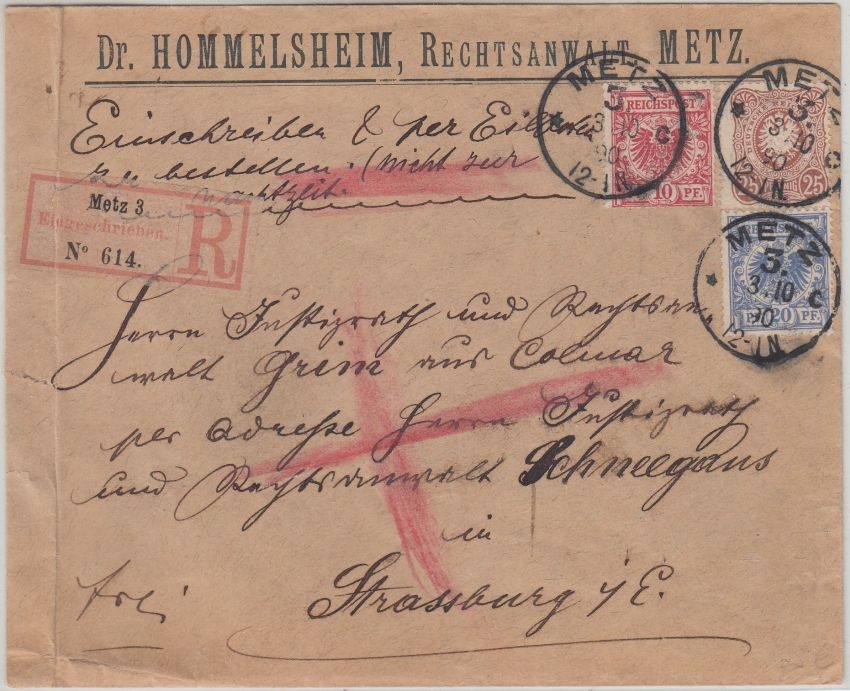 Dr. HOMMELSHEIM, RECHTSANWALT, METZ.
Einschreiben & per Eilboten
zu bestellen. (nicht zur
Nachtzeit.
Metz 3
Eingeschrieben.
No 614.
R
REICHSPOST
10 PF.
25 25
20 PF.
METZ
3.
3 10
90
12-1N.
C
METZ
3.
3 10
90
12-1N.
C
METZ
3.
3 10
90
12-1N.
C
Herrn Justizrath und Rechtsan-
walt Grim aus Colmar
per adresse Herrn Justizrath
und Rechtsanwalt Schneegans
in
Strassburg i/E.
frei